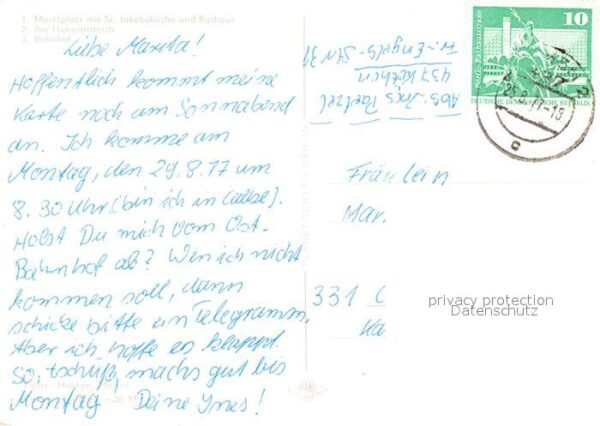 1. Marktplatz mit St. Jakobskirche und Rathaus
2. Am Hubertusteich
3. Bahnhof
Liebe Marita!
Hoffentlich kommt meine
Karte noch am Sonnabend
an. Ich komme am
Montag, den 29.8.77 um
8.30 Uhr (bin ich in Calbe).
Holst Du mich vom Ost-
Bahnhof ab? Wen ich nicht
kommen soll, dann
schicke bitte ein Telegramm.
Aber ich hoffe es klappt.
So, tschüß, machs gut bis
Montag Deine Ines!
Abs. Ines
437 Köthen
Fr.-Engels-
Str. 31
Berlin, Rathausstraße
10
DEUTSCHE DEMOKRATISCHE REPUBLIK
Fräulein
Mar.
331 C
privacy protection
Datenschutz